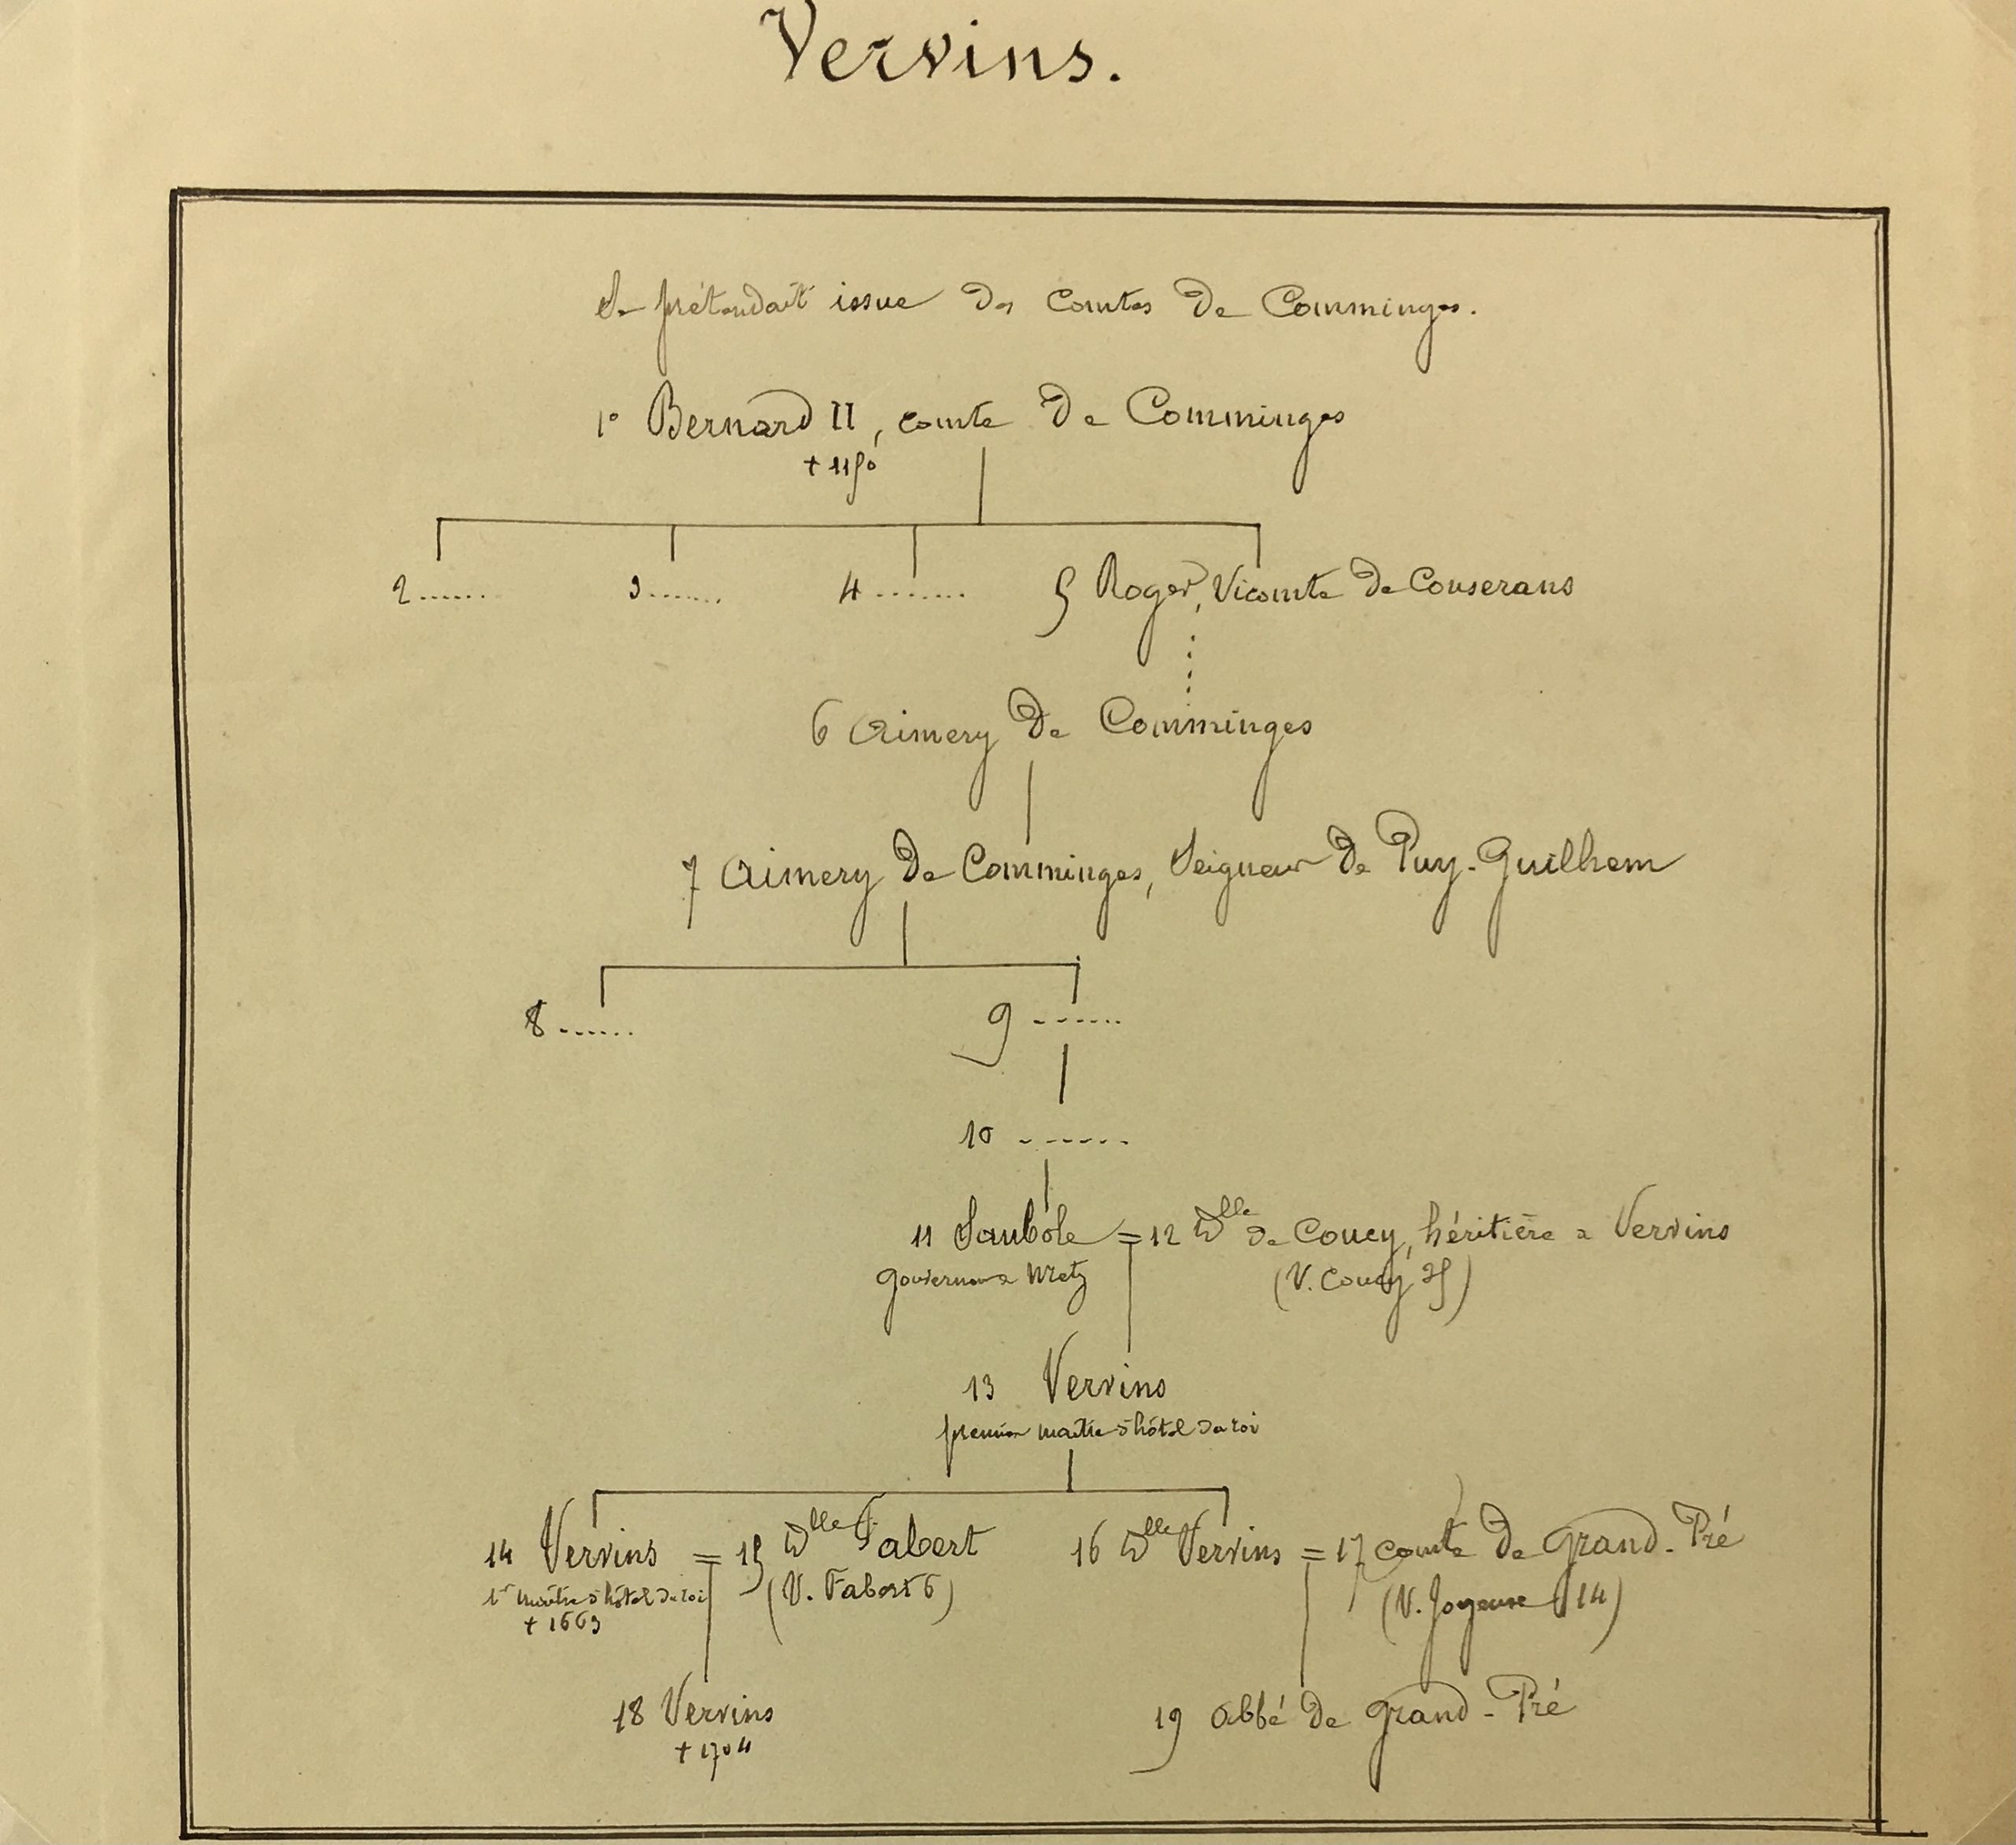 Vervins.
Se prétendait issue des comtes de Comminges.
1° Bernard II, comte de Comminges
+ 1150
2 ...... 3 ...... 4 ....... 5 Roger, Vicomte de Couserans
6 Aimery de Comminges
7 Aimery de Comminges, Seigneur de Puy-Guilhem
8 ...... 9 ......
10 ......
11 Saubole = 12 Dlle de Coucy, héritière de Vervins
gouverneur de Metz (V. Coucy 25)
13 Vervins
premier maître d'hôtel du roi
14 Vervins = 15 Dlle Fabert 16 Dlle Vervins = 17 comte de Grand-Pré
1er maître d'hôtel du roi (V. Fabert 6) (V. Joyeuse 14)
+ 1663
18 Vervins 19 abbé de Grand-Pré
+ 1704